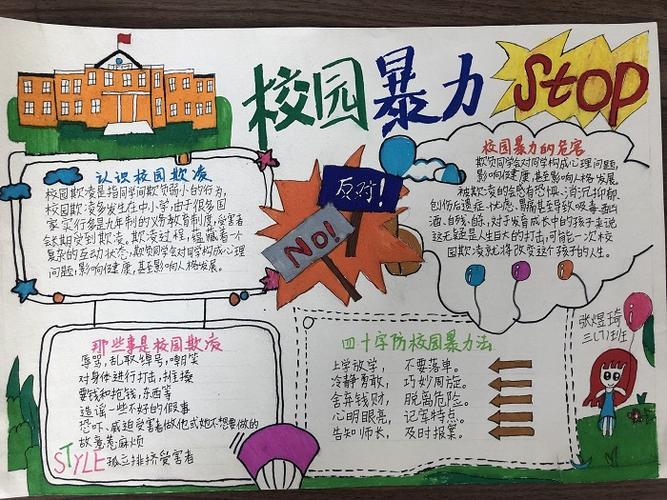 校园暴力
Stop
认识校园欺凌
校园欺凌是指同学间欺负弱小的行为,
校园欺凌多发生在中小学,由于很多国
家实行多是九年制的义务教育制度,受害者
会长期受到欺凌。欺凌过程,蕴藏着一个
复杂的互动状态,欺负同学会对同学构成心理
问题,影响健康,甚至影响人格发展。
反对!
NO!
校园暴力的危害
欺负同学会对同学构成心理问题,
影响健康,甚至影响人格发展。
被欺凌的会感有恐惧、消沉抑郁、
创伤后遗症、忧虑、
酒、自残、自杀,对于发育成长中的孩子来说
这无疑是人生巨大的打击,可能一次校
园欺凌就将改变这个孩子的人生。
那些事是校园欺凌
辱骂,乱取绰号,嘲笑
对身体进行打击,推搡
要钱和抢钱,东西等
造谣一些不好的假事
恐吓、威迫受害者做他或她不想要做的
故意惹麻烦
孤立排挤受害者
STYLE
四十字防校园暴力法
上学放学, 不要落单。
冷静勇敢, 巧妙周旋。
舍弃钱财, 脱离危险。
心明眼亮, 记牢特点。
告知师长, 及时报案。
张煜琦
三(7)班